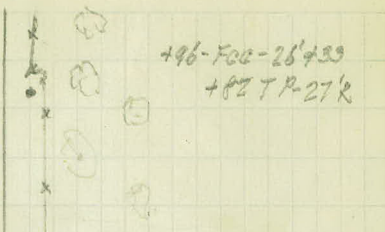 +96-FCC-26'&33
+82 T P-27'R